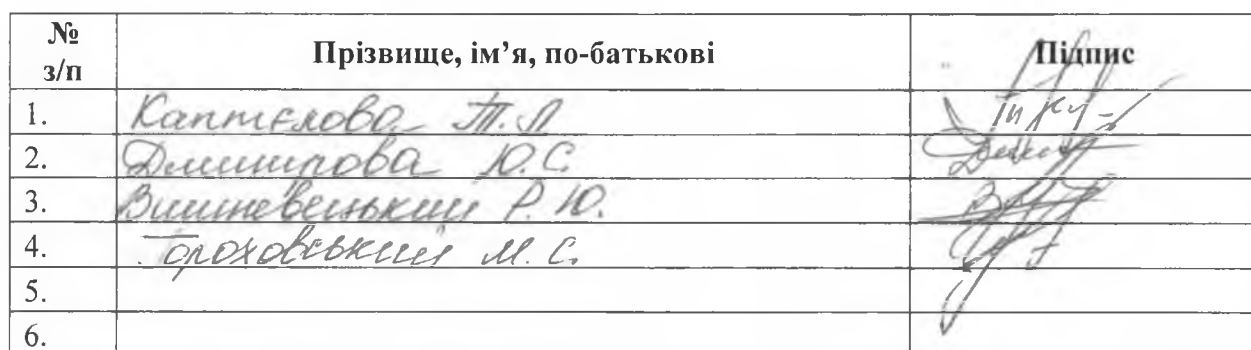 № з/п Прізвище, ім’я, по-батькові Підпис
1. Каптєлова Т. Л
2. Дмитрова Ю. С.
3. Вишневецький Р. Ю.
4. Гороховський М. С.
5.
6.